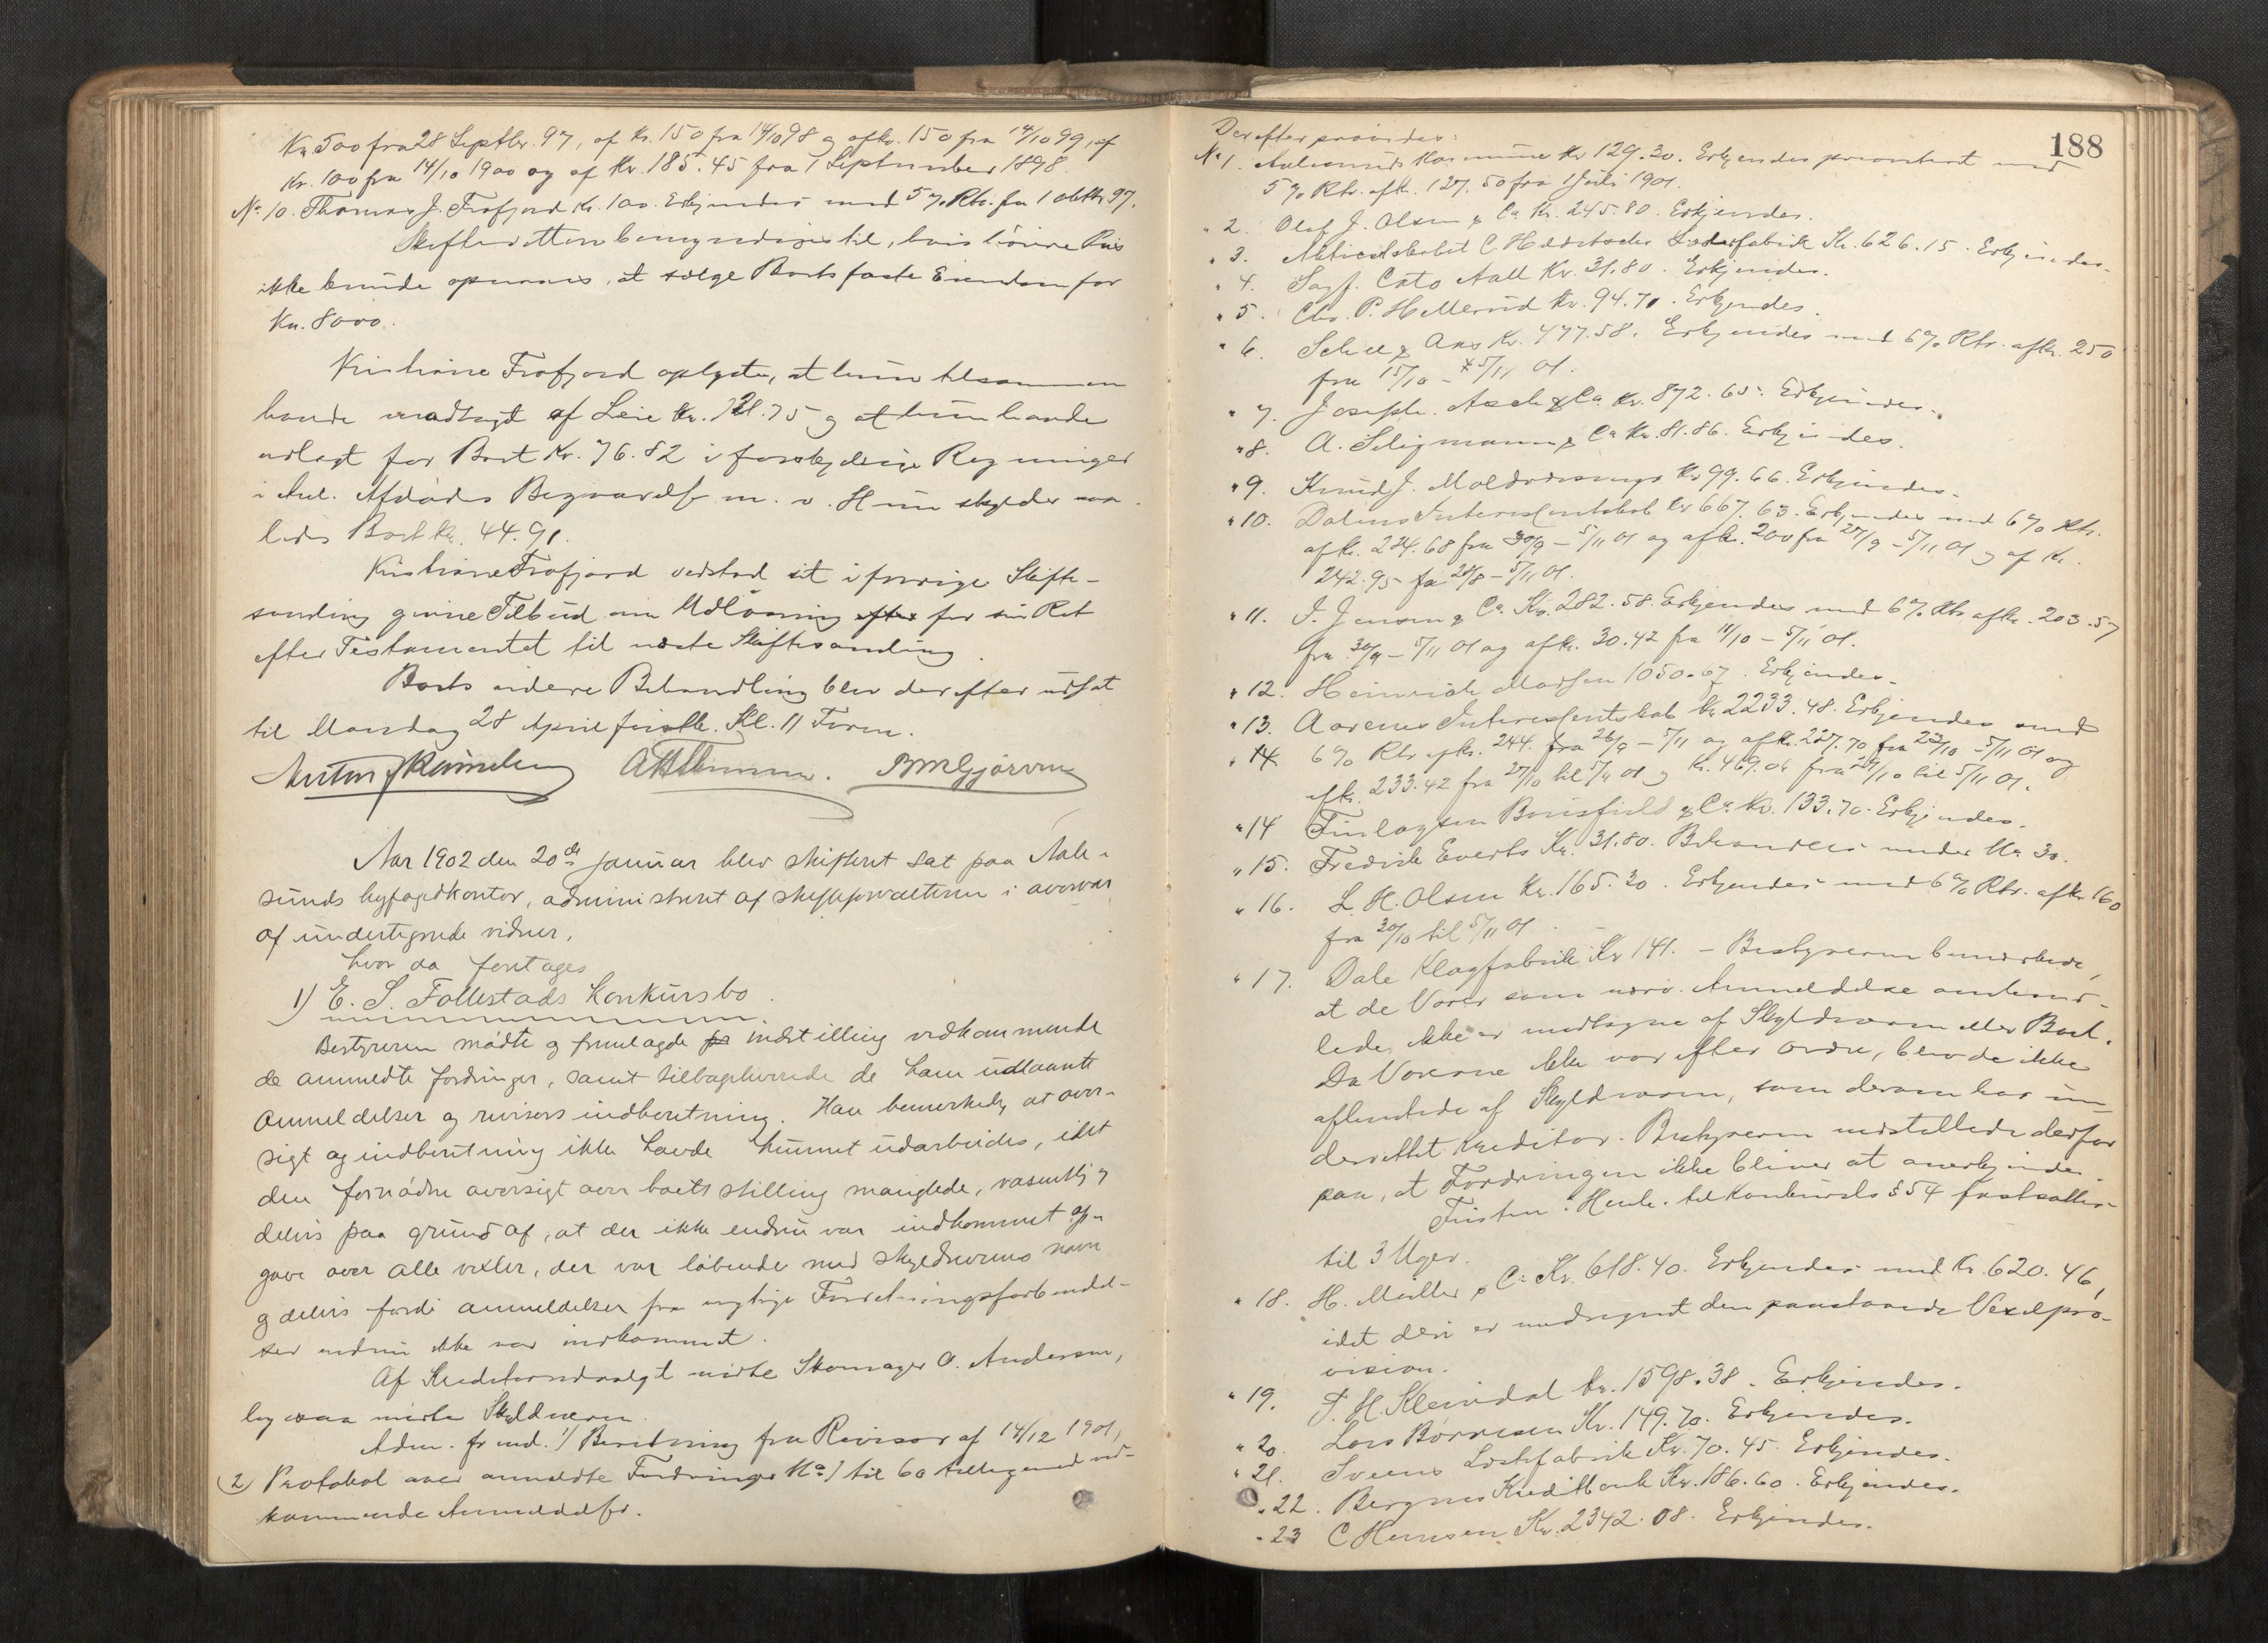 Kr. 500 fra 28 Septbr. 97, af Kr. 150 fra 14/10 98 og af Kr. 150 fra 14/10 99, af
Kr. 100 fra 14/10 1900 og af Kr. 185.45 fra 1 September 1898.
No 10. Thomas J. Frafjord Kr. 100. Erkjendes med 5 % Rtr. fra 1 oktbr 97.
Skifteretten bemyndiges til, hvis höiere Pris
ikke kunde opnaaes, at sælge Boets faste Eiendom for
Kr. 8000.
Kristiane Frafjord oplyste, at hun tilsammen
havde modtaget af Leie Kr. 121.75 og at hun havde
udlagt for Boet Kr. 76.82 i forskjellige Regninger
i Anl. Afdödes Begravelse m. v. Hun skylder saa-
ledes Boet Kr. 44.91.
Kristiane Frafjord vedstod sit i forrige Skifte-
samling givne Tilbud om Udlösning efter for sin Ret
efter Testamentet til næste Skiftesamling.
Boets videre Behandling blev derefter udsat
til Mandag 28 April förstk. Kl. 11 Form.
Aar 1902 den 20de januar blev skifteret sat paa Aale-
sunds byfogedkontor, administreret af skifteforvalteren i overvær
af undertegnede vidner,
hvor da foretages
1) E. S. Follestads konkursbo.
Bestyreren mödte og fremlagde for indstilling vedkommende
de anmeldte fordringer, samt tilbageleverede de ham udlaante
Anmeldelser og revisors indberetning. Han bemerkede, at over-
sigt og indberetning ikke havde kunnet udarbeides, idet
den fornödne oversigt over boets stilling manglede, væsentlig
delvis paa grund af, at der ikke endnu var indkommet op-
gave over alle vexler, der var löbende med skyldnerens navn
og delvis fordi anmeldelser fra vigtige Forretningsforbindel-
ser endnu ikke var indkommet.
Af Kreditorudvalget mödte Skomager O. Andersen,
ligesaa mödte Skyldneren.
Adm. freml. 1) Beretning fra Revisor af 14/12 1901,
2) Protokol over anmeldte Fordringer No 1 til 60 tilligemed ved-
kommende Anmeldelser.
188
Derefter prövedes:
No 1. Aalesunds Kommune Kr 129.30. Erkjendes prioriteret med
5 % Rtr. af Kr. 127.50 fra 1 Juli 1901.
" 2. Olaf J. Olsen & Co Kr. 245.80. Erkjendes.
" 3. Aktieselskabet C. Læderfabrik Kr. 626.15. Erkjendes.
" 4. Sagf. Cato Aall Kr. 31.80. Erkjendes.
" 5. Chr. P. Hellerud Kr. 94.71. Erkjendes.
" 6. Schee & Aas Kr. 477.58. Erkjendes med 6 % Rtr. af Kr. 250
fra 15/10 - 5/11 01.
" 7. Joseph. Asch & Co Kr. 872.65. Erkjendes.
" 8. A. Seligmann & Co Kr. 81.86. Erkjendes.
" 9. Knud J. Kr 99.66. Erkjendes.
" 10. Dalens Interessentskab Kr 667.63. Erkjendes med 6 % Rtr.
af Kr. 224.68 fra 30/9 - 5/11 01 og af Kr. 200 fra 27/9 - 5/11 01 og af Kr.
242.95 fra 28/8 - 5/11 01.
" 11. J. Jensen & Co Kr. 282.58. Erkjendes med 6 % Rtr af Kr. 203.57
fra 30/9 - 5/11 01 og af Kr. 30.42 fra 11/10 - 5/11 01.
" 12. Heinrich Madsen 1050.67. Erkjendes.
" 13. Aarenes Interessentskab Kr 2233.48. Erkjendes med
" 14 6 % Rtr af Kr. 244. fra 26/9 - 5/11 og af Kr. 227.70 fra 23/10 - 5/11 01 og
af Kr. 233.42 fra 27/10 til 5/11 01 og Kr. 469.06 fra 29/10 til 5/11 01.
" 14 Finlayson Bousfield & Co Kr. 133.70. Erkjendes.
" 15. Fredrik Everts Kr. 31.80. Behandles under No 30.
" 16. L. H. Olsen Kr. 165.30. Erkjendes med 6 % Rtr. af Kr. 160
fra 20/10 til 5/11 01.
" 17. Dale Klagfabrik Kr 141. - Bestyreren bemærkede,
at de Varer som nærv. Anmeldelse omhand-
lede, ikke er modtagne af Skyldneren eller Boet.
Da Varerne ikke var efter ordre, blev de ikke
afhentede af Skyldneren, som derom har un-
derrettet Kreditor. Bestyreren indstillede derfor
paa, at Fordringen ikke bliver at anerkjende.
Fristen i Henh. til Konkursls § 54 fastsattes
til 3 Uger.
" 18. H. Müller & Co Kr. 618.40. Erkjendes med Kr. 620.46,
idet deri er medregnet den paastaaede Vexelpro-
vision.
" 19. J. H. Kleivdal Kr. 1598.38. Erkjendes.
" 20. Lars Börresen Kr. 149.70. Erkjendes.
" 21. Sveens Læstfabrik Kr. 70.45. Erkjendes.
" 22. Bergens Kreditbank Kr. 186.60. Erkjendes.
" 23 C Hansen Kr. 2342.08. Erkjendes.